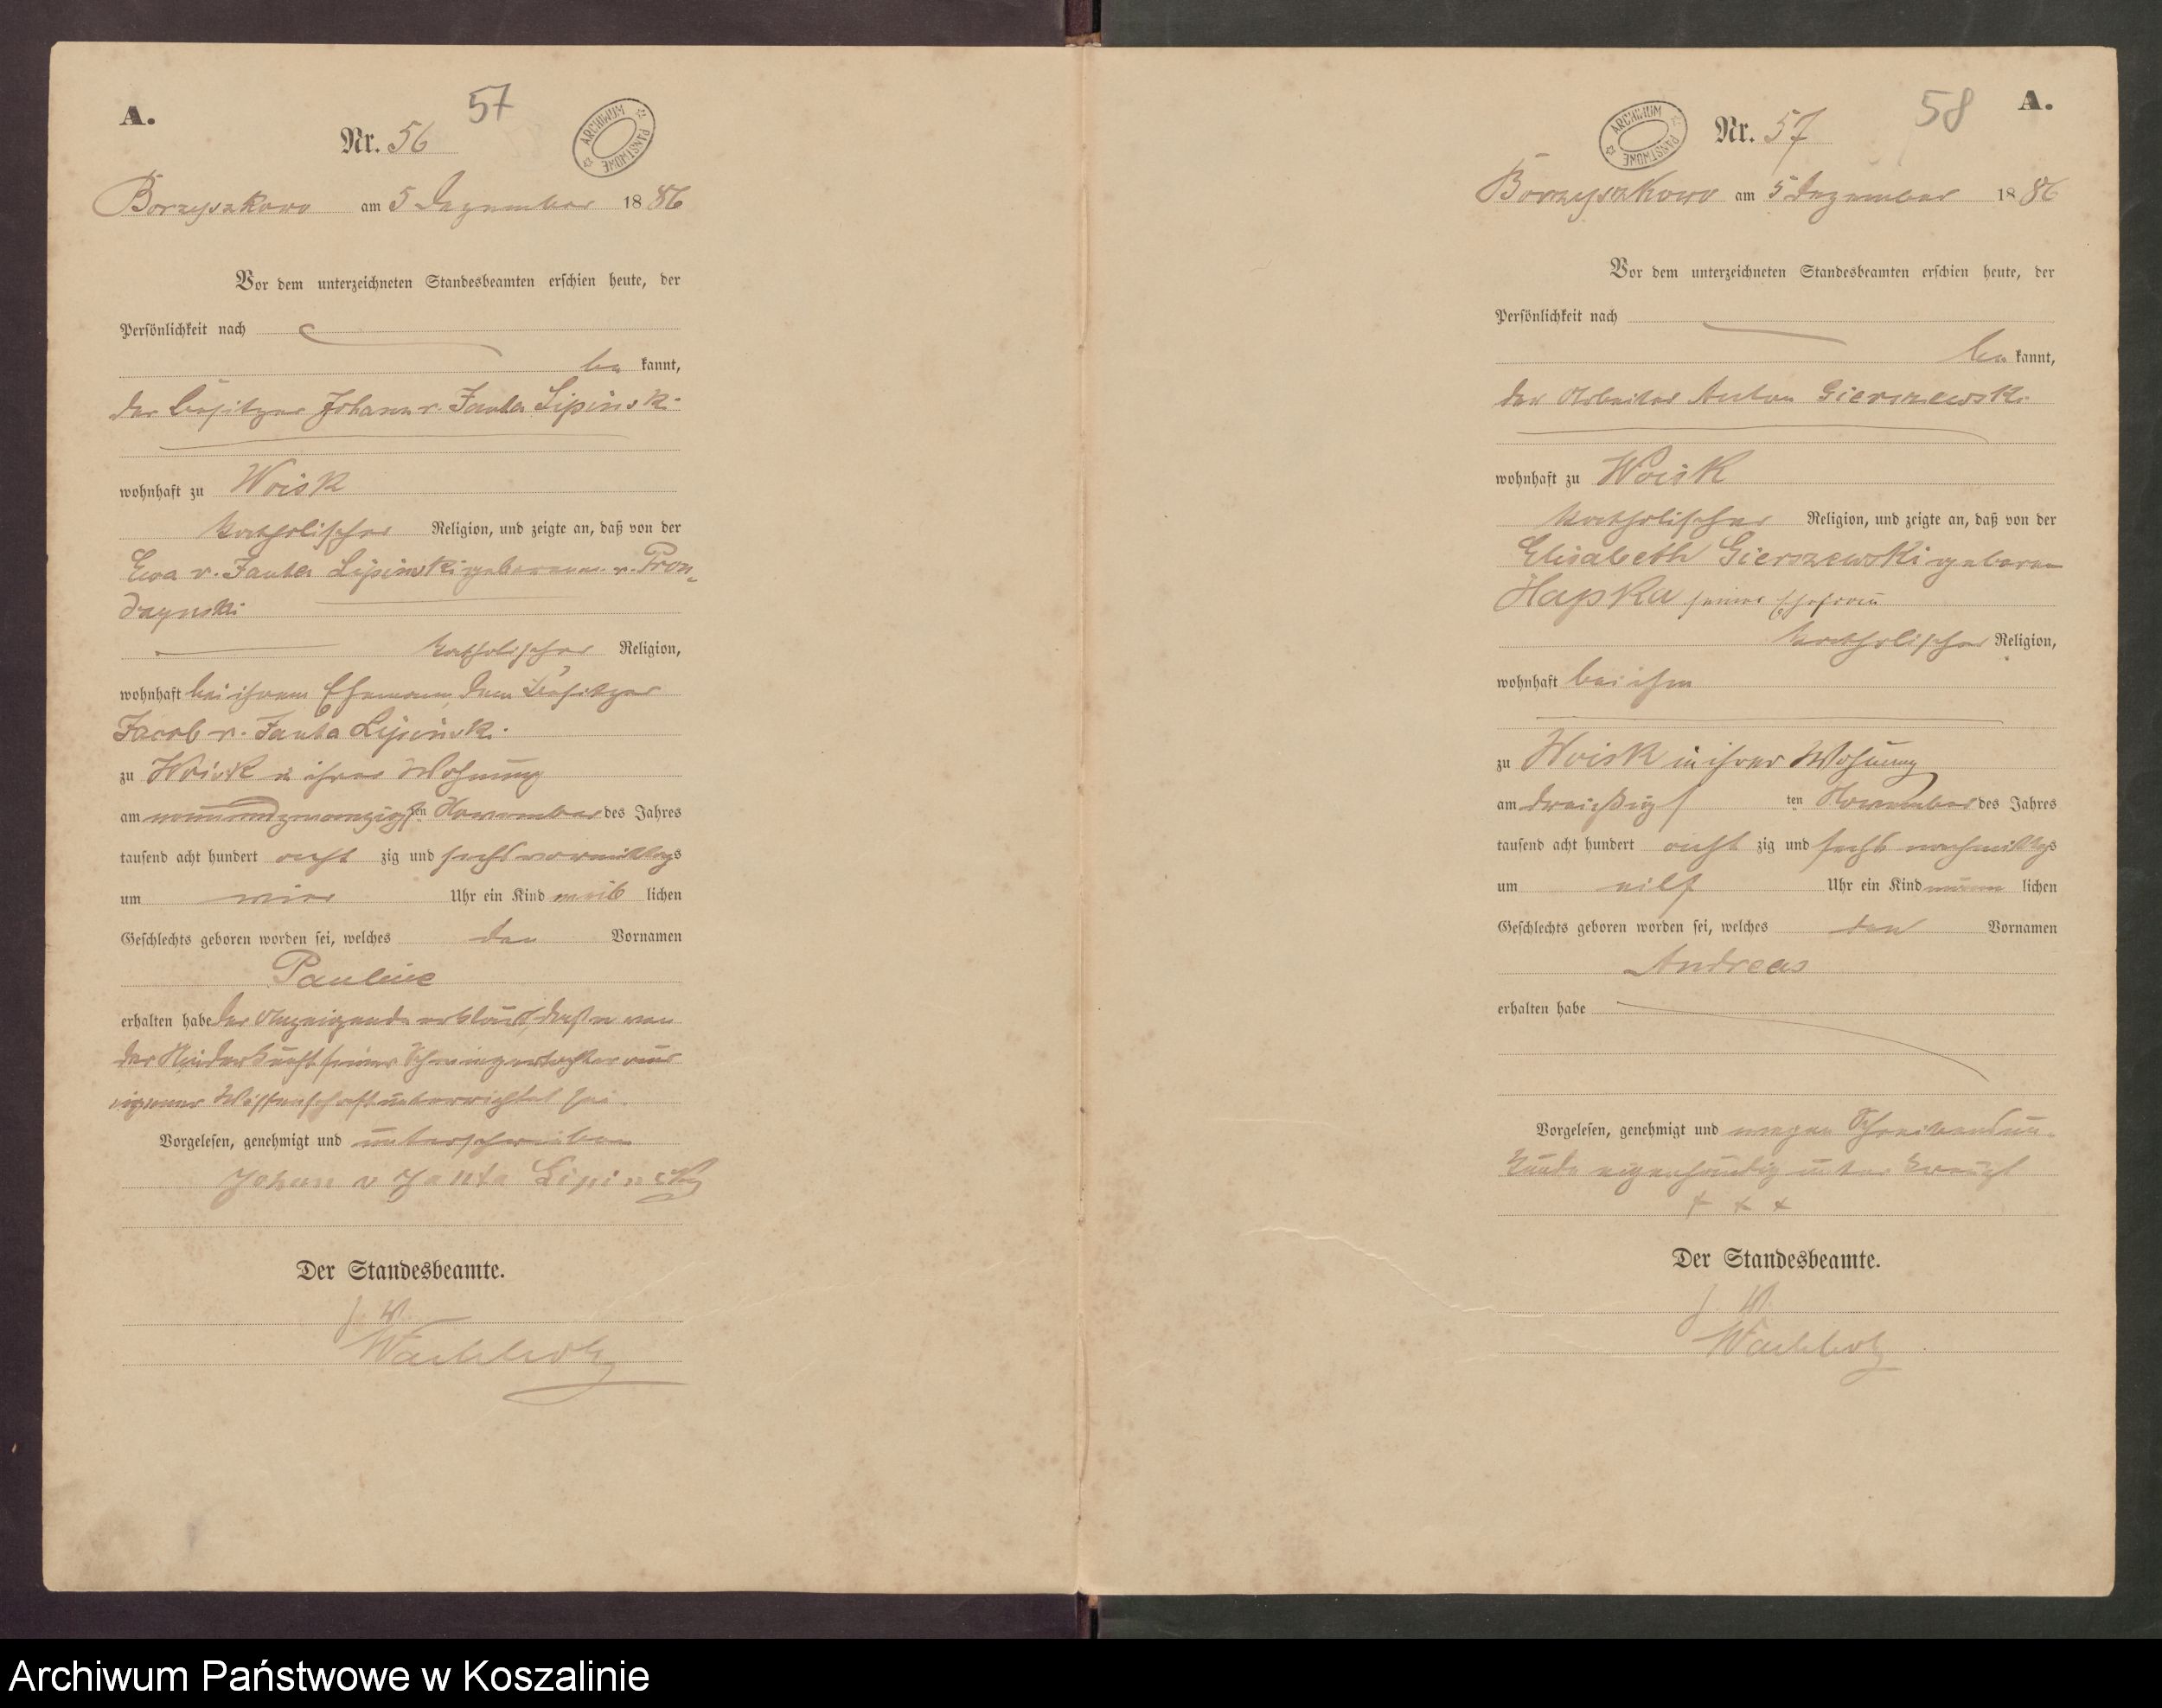 A.
57
Nr. 56
ARCHIWUM PAŃSTWOWE
Borzyszkowo am 5 Dezember 1886
Vor dem unterzeichneten Standesbeamten erschien heute, der
Persönlichkeit nach
be kannt,
der Besitzer Johann v. Janta Lipinski
wohnhaft zu Woisk
katholischer Religion, und zeigte an, daß von der
Eva v. Janta Lipinski geborenen v. Pron=
dzynski
katholischer Religion,
wohnhaft bei ihrem Ehemann, dem Besitzer
Jacob v. Janta Lipinski
zu Woisk in ihrer Wohnung
am neunundzwanzigsten November des Jahres
tausend acht hundert acht zig und sechs vormittags
um vier Uhr ein Kind weib lichen
Geschlechts geboren worden sei, welches den Vornamen
Pauline
erhalten habe der Anzeigende erklärt, daß er von
der Niederkunft seiner Schwiegertochter aus
eigener Wissenschaft unterrichtet sei.
Vorgelesen, genehmigt und unterschrieben
Johan v Janta Lipinski
Der Standesbeamte.
J. V.
Wachholz
A.
58
Nr. 57
ARCHIWUM PAŃSTWOWE
Borzyszkowo am 5 Dezember 1886
Vor dem unterzeichneten Standesbeamten erschien heute, der
Persönlichkeit nach
be kannt,
der Arbeiter Anton Gierszewski
wohnhaft zu Woisk
katholischer Religion, und zeigte an, daß von der
Elisabeth Gierszewski geboren
Hapka seiner Ehefrau
katholischer Religion,
wohnhaft bei ihm
zu Woisk in ihrer Wohnung
am dreißigs ten November des Jahres
tausend acht hundert acht zig und sechs nachmittags
um eilf Uhr ein Kind männ lichen
Geschlechts geboren worden sei, welches den Vornamen
Andreas
erhalten habe
Vorgelesen, genehmigt und wegen Schreibensun=
kunde eigenhändig unter kreuzt
+ + +
Der Standesbeamte.
J. V.
Wachholz
Archiwum Państwowe w Koszalinie